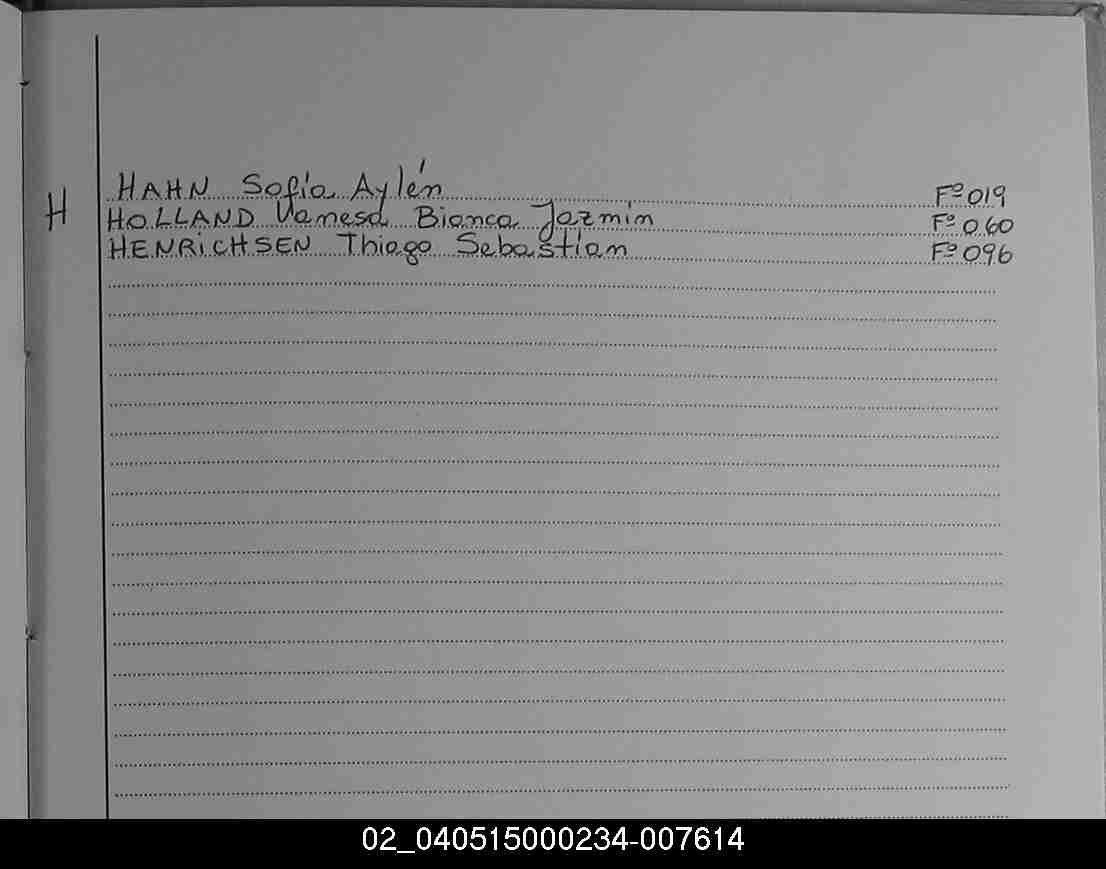 H
HAHN Sofía Aylén Fº 019
HOLLAND Vanesa Bianca Jazmin Fº 060
HENRiCHSEN Thiago Sebastian Fº 096
02_040515000234-007614